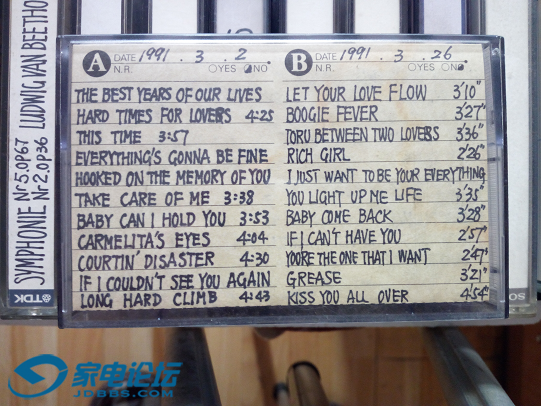 SYMPHONIE Nr5,OP67 LUDWIG VAN BEETHO
Nr2,OP36
TDK
A DATE 1991 . 3 . 2 .
N.R. YES NO
THE BEST YEARS OF OUR LIVES
HARD TIMES FOR LOVERS 4:25
THIS TIME 3:57
EVERYTHING'S GONNA BE FINE
HOOKED ON THE MEMORY OF YOU
TAKE CARE OF ME 3:38
BABY CAN I HOLD YOU 3:53
CARMELITA'S EYES 4:04
COURTIN' DISASTER 4:30
IF I COULDN'T SEE YOU AGAIN
LONG HARD CLIMB 4:43
B DATE 1991 . 3 . 26 .
N.R. YES NO
LET YOUR LOVE FLOW 3'10"
BOOGIE FEVER 3'27"
TORU BETWEEN TWO LOVERS 3'36"
RICH GIRL 2'26"
I JUST WANT TO BE YOUR EVERYTHING
YOU LIGHT UP ME LIFE 3'35"
BABY COME BACK 3'28"
IF I CAN'T HAVE YOU 2'57"
YOORE THE ONE THAT I WANT 2'47"
GREASE 3'21"
KISS YOU ALL OVER 4'54"
SO
家电论坛
JDBBS.COM